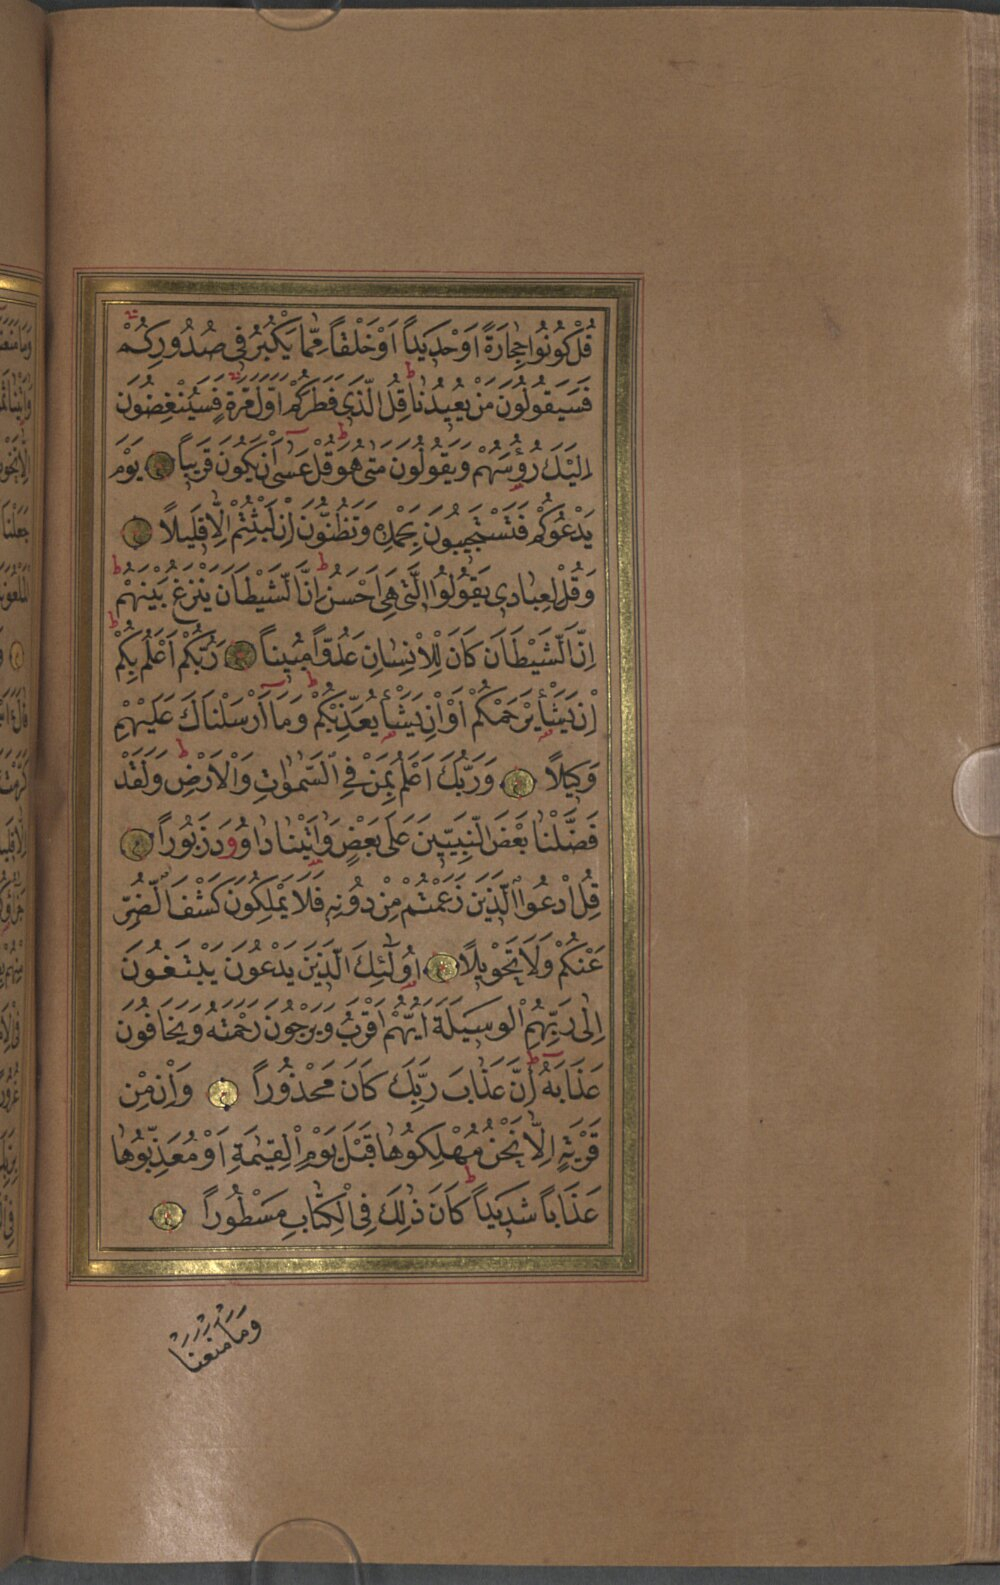 قُلْ كُونُوا حِجَارَةً اَوْ حَدِيداً اَوْ خَلْقاً مِمَّا يَكْبُرُ فِى صُدُورِكُمْ
فَسَيَقُولُونَ مَنْ يُعِيدُنَا قُلِ الَّذِى فَطَرَكُمْ اَوَّلَ مَرَّةٍ فَسَيُنْغِضُونَ
اِلَيْكَ رُؤُسَهُمْ وَيَقُولُونَ مَتٰى هُوَ قُلْ عَسٰى اَنْ يَكُونَ قَرِيباً يَوْمَ
يَدْعُوكُمْ فَتَسْتَجِيبُونَ بِحَمْدِهِ وَتَظُنُّونَ اِنْ لَبِثْتُمْ اِلَّا قَلِيلاً
وَقُلْ لِعِبَادِى يَقُولُوا الَّتِى هِىَ اَحْسَنُ اِنَّ الشَّيْطَانَ يَنْزَغُ بَيْنَهُمْ
اِنَّ الشَّيْطَانَ كَانَ لِلْاِنْسَانِ عَدُوّاً مُبِيناً رَبُّكُمْ اَعْلَمُ بِكُمْ
اِنْ يَشَأْ يَرْحَمْكُمْ اَوْ اِنْ يَشَأْ يُعَذِّبْكُمْ وَمَا اَرْسَلْنَاكَ عَلَيْهِمْ
وَكِيلاً وَرَبُّكَ اَعْلَمُ بِمَنْ فِى السَّمٰوَاتِ وَالْاَرْضِ وَلَقَدْ
فَضَّلْنَا بَعْضَ النَّبِيِّينَ عَلَى بَعْضٍ وَاٰتَيْنَا دَاوُودَ زَبُوراً
قُلِ ادْعُوا الَّذِينَ زَعَمْتُمْ مِنْ دُونِهِ فَلَا يَمْلِكُونَ كَشْفَ الضُّرِّ
عَنْكُمْ وَلَا تَحْوِيلاً اُولٰئِكَ الَّذِينَ يَدْعُونَ يَبْتَغُونَ
اِلٰى رَبِّهِمُ الْوَسِيلَةَ اَيُّهُمْ اَقْرَبُ وَيَرْجُونَ رَحْمَتَهُ وَيَخَافُونَ
عَذَابَهُ اِنَّ عَذَابَ رَبِّكَ كَانَ مَحْذُوراً وَاِنْ مِنْ
قَرْيَةٍ اِلَّا نَحْنُ مُهْلِكُوهَا قَبْلَ يَوْمِ الْقِيٰمَةِ اَوْ مُعَذِّبُوهَا
عَذَاباً شَدِيداً كَانَ ذٰلِكَ فِى الْكِتَابِ مَسْطُوراً
وَمَا مَنَعَنَا